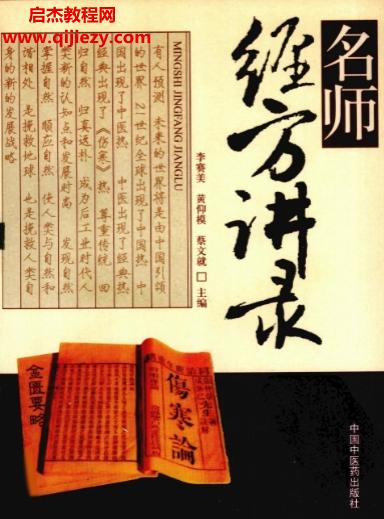 启杰教程网
www.qijiezy.com
名师
经方讲录
MINGSHI JINGFANG JIANGLU
有人预测 未来的世界将是由中国引领
的世界 21世纪全球出现了中国热 中
国出现了中医热 中医出现了经典热
经典出现了《伤寒》热 尊重传统 回
归自然 归真返朴 成为后工业时代人
类新的认知点和发展时尚 发现自然
掌握自然 顺应自然 使人类与自然和
谐相处 是挽救地球 也是挽救人类自
身的新的发展战略
李赛美 黄仰模 蔡文就 主编
傷寒論
金匱要略
中国中医药出版社